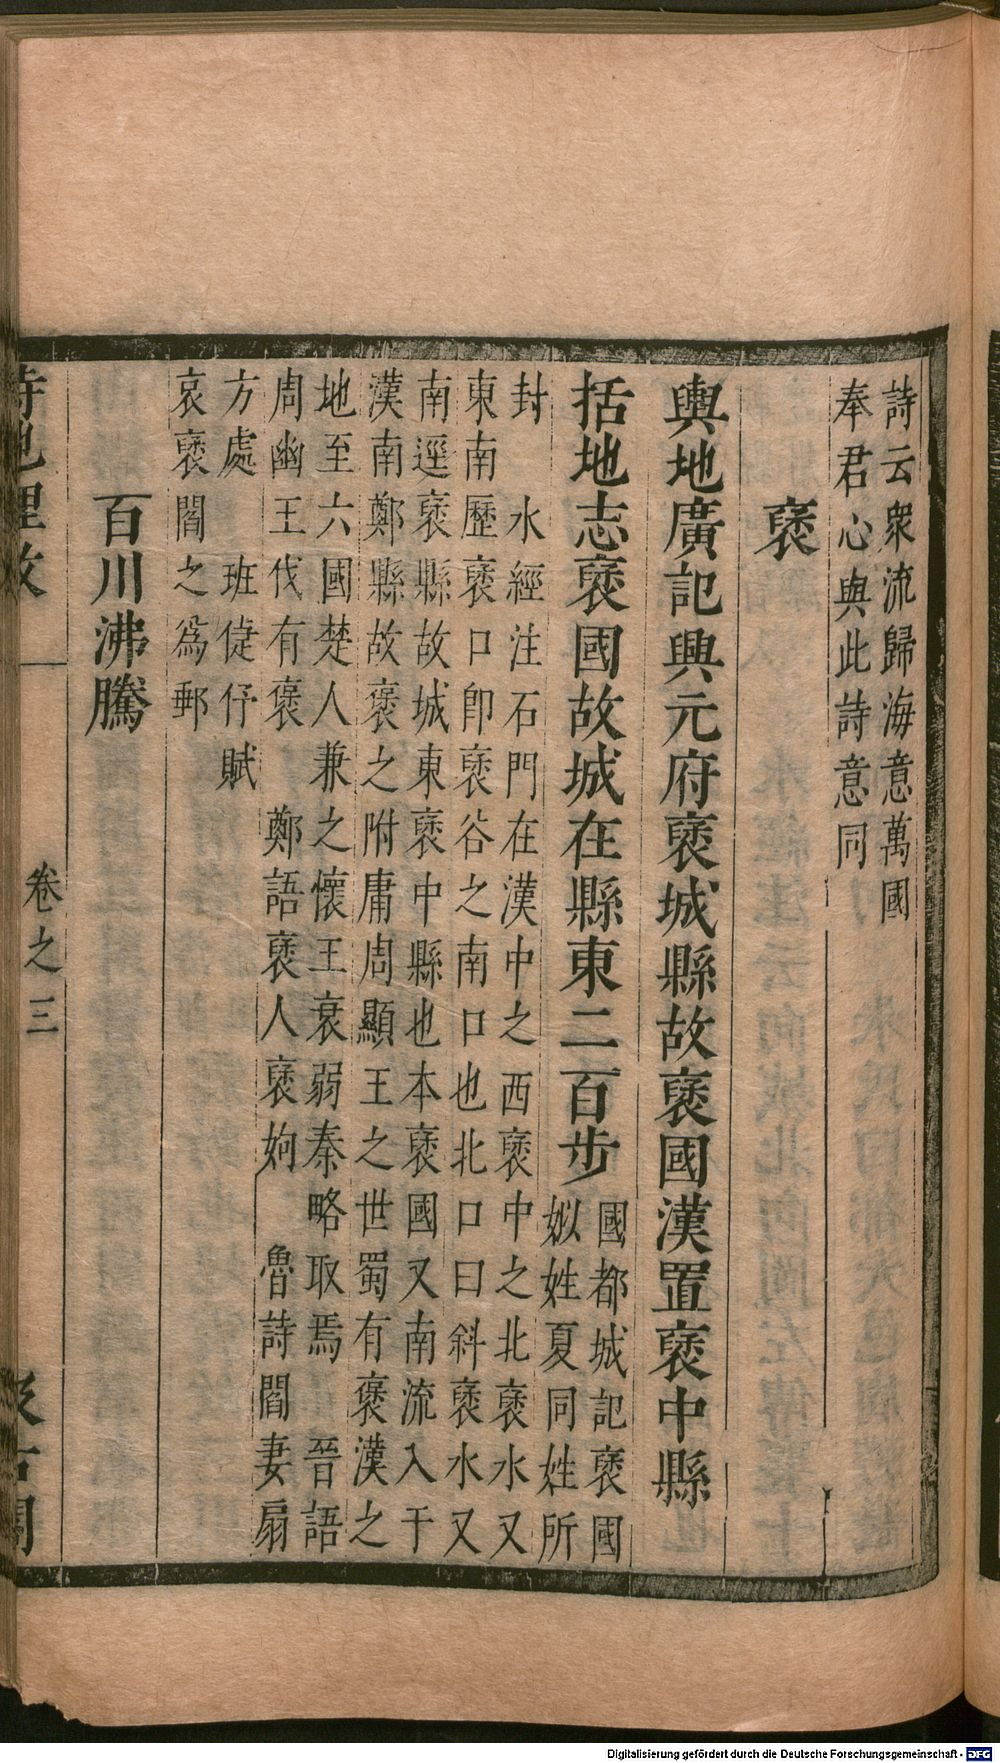 詩云衆流歸海意萬國
奉君心與此詩意同
襃
輿地廣記興元府襃城縣故襃國漢置襃中縣
括地志襃國故城在縣東二百步
國都城記襃國
姒姓夏同姓所
封　水經注石門在漢中之西襃中之北襃水又
東南歷襃口卽襃谷之南口也北口曰斜襃水又
南逕襃縣故城東襃中縣也本襃國又南流入于
漢南鄭縣故褒之附庸周顯王之世蜀有褒漢之
地至六國楚人兼之懷王衰弱秦略取焉　晉語
周幽王伐有褒　鄭語襃人襃姁　魯詩閻妻扇
方處　班倢伃賦
哀襃閻之為郵
百川沸騰
詩地理攷
卷之三
汲古閣
Digitalisierung gefördert durch die Deutsche Forschungsgemeinschaft - DFG